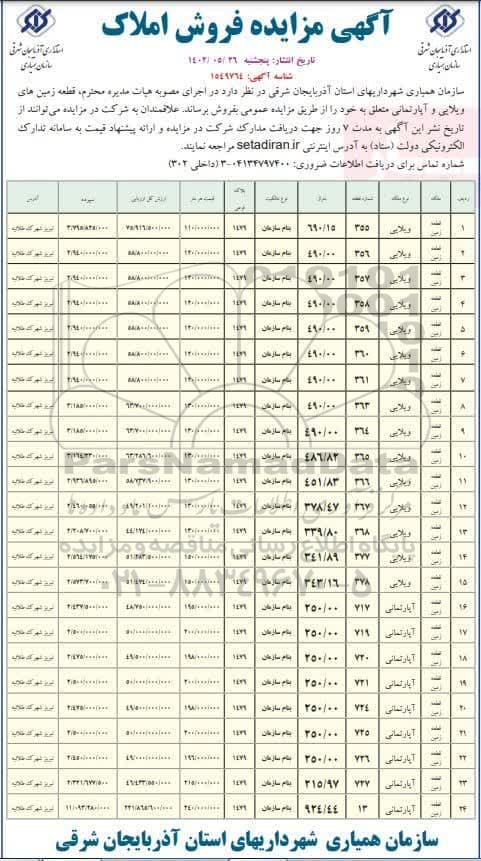 آگهی مزایده فروش املاک
استانداری آذربایجان شرقی
سازمان همیاری
استانداری آذربایجان شرقی
سازمان همیاری
تاریخ انتشار: پنجشنبه ۲۶ /۰۵ /۱۴۰۲
شناسه آگهی: ۱۵۴۹۷۶۴
سازمان همیاری شهرداریهای استان آذربایجان شرقی در نظر دارد در اجرای مصوبه هیات مدیره محترم، قطعه زمین های
ویلایی و آپارتمانی متعلق به خود را از طریق مزایده عمومی بفروش برساند. علاقمندان به شرکت در مزایده می‌توانند از
تاریخ نشر این آگهی به مدت ۷ روز جهت دریافت مدارک شرکت در مزایده و ارائه پیشنهاد قیمت به سامانه تدارک
الکترونیکی دولت (ستاد) به آدرس اینترنتی setadiran.ir مراجعه نمایند.
شماره تماس برای دریافت اطلاعات ضروری: ۰۴۱۳۴۷۹۷۴۰۰-۳ (داخلی ۳۰۲)
ردیف ملک نوع ملک شماره قطعه متراژ نوع مالکیت پلاک فرعی قیمت هر متر ارزش کل ارزیابی سپرده آدرس
۱ قطعه زمین ویلایی ۳۵۵ ۶۹۰/۱۵ بنام سازمان ۱۴۷۹ ۱۱۰/۰۰۰/۰۰۰ ۷۵/۹۱۶/۵۰۰/۰۰۰ ۳/۷۹۵/۸۲۵/۰۰۰ تبریز شهرک طلائیه
۲ قطعه زمین ویلایی ۳۵۶ ۴۹۰/۰۰ بنام سازمان ۱۴۷۹ ۱۲۰/۰۰۰/۰۰۰ ۵۸/۸۰۰/۰۰۰/۰۰۰ ۲/۹۴۰/۰۰۰/۰۰۰ تبریز شهرک طلائیه
۳ قطعه زمین ویلایی ۳۵۷ ۴۹۰/۰۰ بنام سازمان ۱۴۷۹ ۱۲۰/۰۰۰/۰۰۰ ۵۸/۸۰۰/۰۰۰/۰۰۰ ۲/۹۴۰/۰۰۰/۰۰۰ تبریز شهرک طلائیه
۴ قطعه زمین ویلایی ۳۵۸ ۴۹۰/۰۰ بنام سازمان ۱۴۷۹ ۱۲۰/۰۰۰/۰۰۰ ۵۸/۸۰۰/۰۰۰/۰۰۰ ۲/۹۴۰/۰۰۰/۰۰۰ تبریز شهرک طلائیه
۵ قطعه زمین ویلایی ۳۵۹ ۴۹۰/۰۰ بنام سازمان ۱۴۷۹ ۱۲۰/۰۰۰/۰۰۰ ۵۸/۸۰۰/۰۰۰/۰۰۰ ۲/۹۴۰/۰۰۰/۰۰۰ تبریز شهرک طلائیه
۶ قطعه زمین ویلایی ۳۶۰ ۴۹۰/۰۰ بنام سازمان ۱۴۷۹ ۱۲۰/۰۰۰/۰۰۰ ۵۸/۸۰۰/۰۰۰/۰۰۰ ۲/۹۴۰/۰۰۰/۰۰۰ تبریز شهرک طلائیه
۷ قطعه زمین ویلایی ۳۶۱ ۴۹۰/۰۰ بنام سازمان ۱۴۷۹ ۱۲۰/۰۰۰/۰۰۰ ۵۸/۸۰۰/۰۰۰/۰۰۰ ۲/۹۴۰/۰۰۰/۰۰۰ تبریز شهرک طلائیه
۸ قطعه زمین ویلایی ۳۶۳ ۴۹۰/۰۰ بنام سازمان ۱۴۷۹ ۱۳۰/۰۰۰/۰۰۰ ۶۳/۷۰۰/۰۰۰/۰۰۰ ۳/۱۸۵/۰۰۰/۰۰۰ تبریز شهرک طلائیه
۹ قطعه زمین ویلایی ۳۶۴ ۴۹۰/۰۰ بنام سازمان ۱۴۷۹ ۱۳۰/۰۰۰/۰۰۰ ۶۳/۷۰۰/۰۰۰/۰۰۰ ۳/۱۸۵/۰۰۰/۰۰۰ تبریز شهرک طلائیه
۱۰ قطعه زمین ویلایی ۳۶۵ ۴۸۶/۸۲ بنام سازمان ۱۴۷۹ ۱۳۰/۰۰۰/۰۰۰ ۶۳/۲۸۶/۶۰۰/۰۰۰ ۳/۱۶۴/۳۳۰/۰۰۰ تبریز شهرک طلائیه
۱۱ قطعه زمین ویلایی ۳۶۶ ۴۵۱/۸۳ بنام سازمان ۱۴۷۹ ۱۳۰/۰۰۰/۰۰۰ ۵۸/۷۳۷/۹۰۰/۰۰۰ ۲/۹۳۶/۸۹۵/۰۰۰ تبریز شهرک طلائیه
۱۲ قطعه زمین ویلایی ۳۶۷ ۳۷۸/۴۷ بنام سازمان ۱۴۷۹ ۱۳۰/۰۰۰/۰۰۰ ۴۹/۲۰۱/۱۰۰/۰۰۰ ۲/۴۶۰/۰۵۵/۰۰۰ تبریز شهرک طلائیه
۱۳ قطعه زمین ویلایی ۳۶۸ ۳۳۹/۸۰ بنام سازمان ۱۴۷۹ ۱۳۰/۰۰۰/۰۰۰ ۴۴/۱۷۴/۰۰۰/۰۰۰ ۲/۲۰۸/۷۰۰/۰۰۰ تبریز شهرک طلائیه
۱۴ قطعه زمین ویلایی ۳۷۷ ۳۴۱/۸۹ بنام سازمان ۱۴۷۹ ۱۵۰/۰۰۰/۰۰۰ ۵۱/۲۸۳/۵۰۰/۰۰۰ ۲/۵۶۴/۱۷۵/۰۰۰ تبریز شهرک طلائیه
۱۵ قطعه زمین ویلایی ۳۷۸ ۳۴۳/۱۶ بنام سازمان ۱۴۷۹ ۱۵۰/۰۰۰/۰۰۰ ۵۱/۴۷۴/۰۰۰/۰۰۰ ۲/۵۷۳/۷۰۰/۰۰۰ تبریز شهرک طلائیه
۱۶ قطعه زمین آپارتمانی ۷۱۷ ۲۵۰/۰۰ بنام سازمان ۱۴۷۹ ۱۹۵/۰۰۰/۰۰۰ ۴۸/۷۵۰/۰۰۰/۰۰۰ ۲/۴۳۷/۵۰۰/۰۰۰ تبریز شهرک طلائیه
۱۷ قطعه زمین آپارتمانی ۷۱۹ ۲۵۰/۰۰ بنام سازمان ۱۴۷۹ ۲۰۰/۰۰۰/۰۰۰ ۵۰/۰۰۰/۰۰۰/۰۰۰ ۲/۵۰۰/۰۰۰/۰۰۰ تبریز شهرک طلائیه
۱۸ قطعه زمین آپارتمانی ۷۲۰ ۲۵۰/۰۰ بنام سازمان ۱۴۷۹ ۱۹۸/۰۰۰/۰۰۰ ۴۹/۵۰۰/۰۰۰/۰۰۰ ۲/۴۷۵/۰۰۰/۰۰۰ تبریز شهرک طلائیه
۱۹ قطعه زمین آپارتمانی ۷۲۱ ۲۵۰/۰۰ بنام سازمان ۱۴۷۹ ۲۰۰/۰۰۰/۰۰۰ ۵۰/۰۰۰/۰۰۰/۰۰۰ ۲/۵۰۰/۰۰۰/۰۰۰ تبریز شهرک طلائیه
۲۰ قطعه زمین آپارتمانی ۷۲۴ ۲۵۰/۰۰ بنام سازمان ۱۴۷۹ ۱۹۸/۰۰۰/۰۰۰ ۴۹/۵۰۰/۰۰۰/۰۰۰ ۲/۴۷۵/۰۰۰/۰۰۰ تبریز شهرک طلائیه
۲۱ قطعه زمین آپارتمانی ۷۲۵ ۲۵۰/۰۰ بنام سازمان ۱۴۷۹ ۲۰۰/۰۰۰/۰۰۰ ۵۰/۰۰۰/۰۰۰/۰۰۰ ۲/۵۰۰/۰۰۰/۰۰۰ تبریز شهرک طلائیه
۲۲ قطعه زمین آپارتمانی ۷۲۶ ۲۵۰/۰۰ بنام سازمان ۱۴۷۹ ۱۹۶/۰۰۰/۰۰۰ ۴۹/۰۰۰/۰۰۰/۰۰۰ ۲/۴۵۰/۰۰۰/۰۰۰ تبریز شهرک طلائیه
۲۳ قطعه زمین آپارتمانی ۷۲۷ ۲۱۵/۹۷ بنام سازمان ۱۴۷۹ ۲۱۵/۰۰۰/۰۰۰ ۴۶/۴۳۳/۵۵۰/۰۰۰ ۲/۳۲۱/۶۷۷/۵۰۰ تبریز شهرک طلائیه
۲۴ قطعه زمین آپارتمانی ۱۳ ۹۲۴/۴۴ بنام سازمان ۱۴۷۹ ۲۴۰/۰۰۰/۰۰۰ ۲۲۱/۸۶۵/۶۰۰/۰۰۰ ۱۱/۰۹۳/۲۸۰/۰۰۰ تبریز شهرک طلائیه
ParsNamadData
پایگاه اطلاع رسانی مناقصه و مزایده
۰۲۱-۸۸۳۴۹۶۷۰-۵
سازمان همیاری شهرداریهای استان آذربایجان شرقی